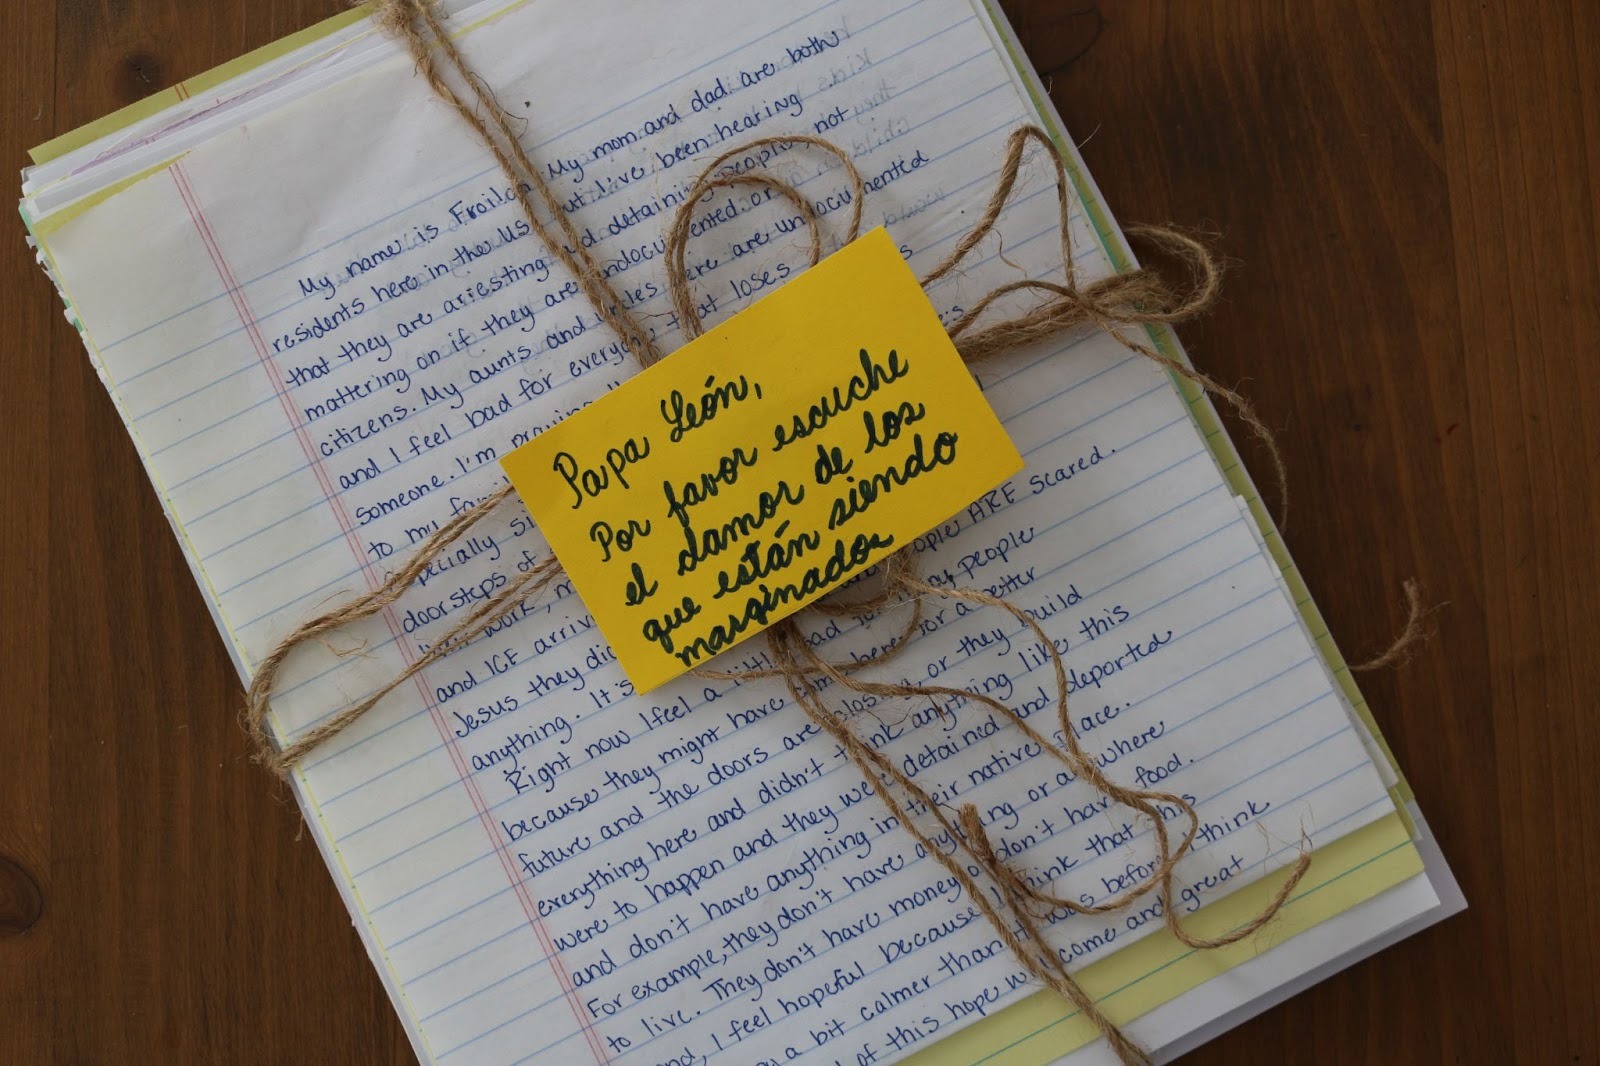 Papa León,
Por favor escuche
el clamor de los
que están siendo
marginados
My name is Froilan My mom and dad are both
residents here in the US but I've been hearing
that they are arresting and detaining people, not
mattering on if they are undocumented or
citizens. My aunts and uncles here are undocumented
and I feel bad for everyone that loses
someone. I'm praying
to my fam
specially si
doorsteps of people ARE scared.
their work, m
and ICE arriv people
Jesus they did for a better
anything. It's or they build
Right now I feel a little bad for
because they might have came here like this
future and the doors are closed, deported
everything here and didn't think anything
were to happen and they were detained and
and don't have anything in their native place.
For example, they don't have anything or anywhere
to live. They don't have money or don't have food.
and, I feel hopeful because I think that this
a bit calmer than it was before. I think
of this hope will come and great